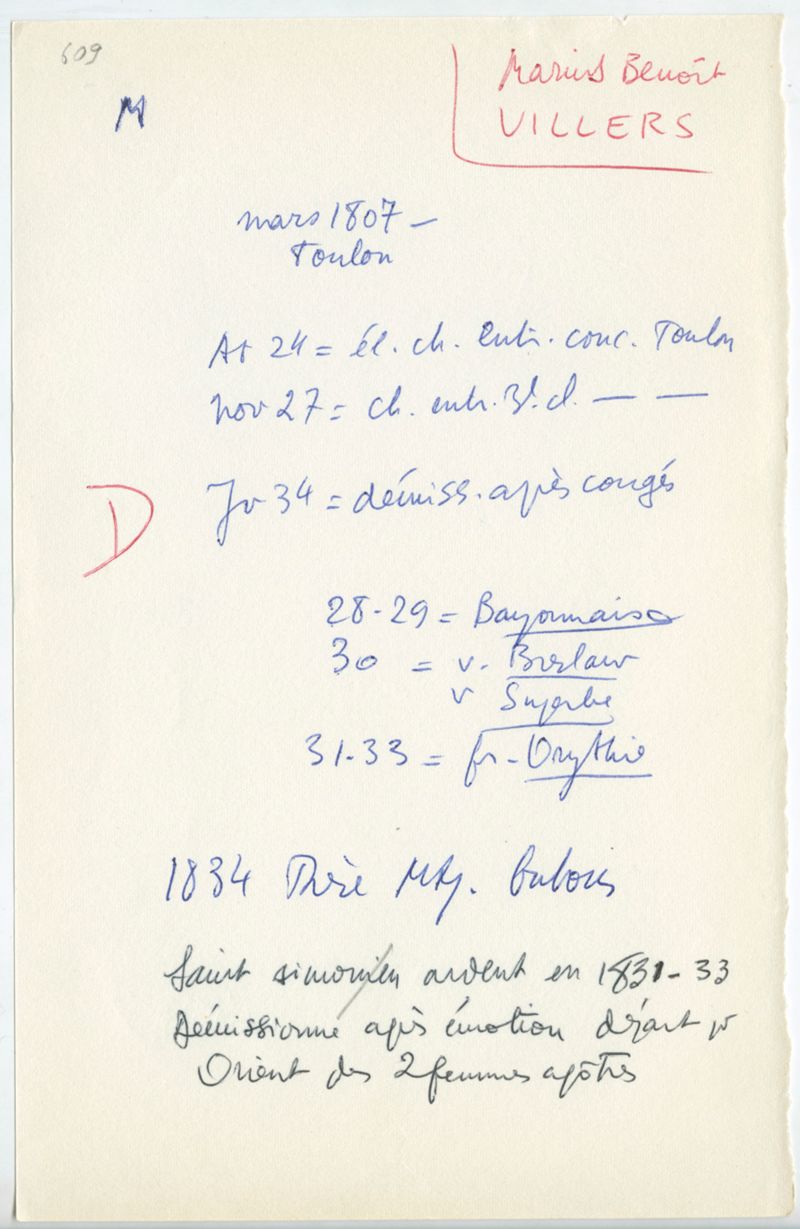 609
M
Marius Benoît
VILLERS
mars 1807 —
Toulon
At 24 = él. ch. entr. conc. Toulon
Nov 27 = ch. entr. 3e cl. — —
D
Jv 34 = démiss. après congés
28-29 = Bayonnaise
30 = v. Breslaw
v Superbe
31-33 = fr- Orythie
1834 Thèse Mtp. Dubois
Saint simonien ardent en 1831-33
Démissionne après émotion départ pr
Orient des 2 femmes apôtres